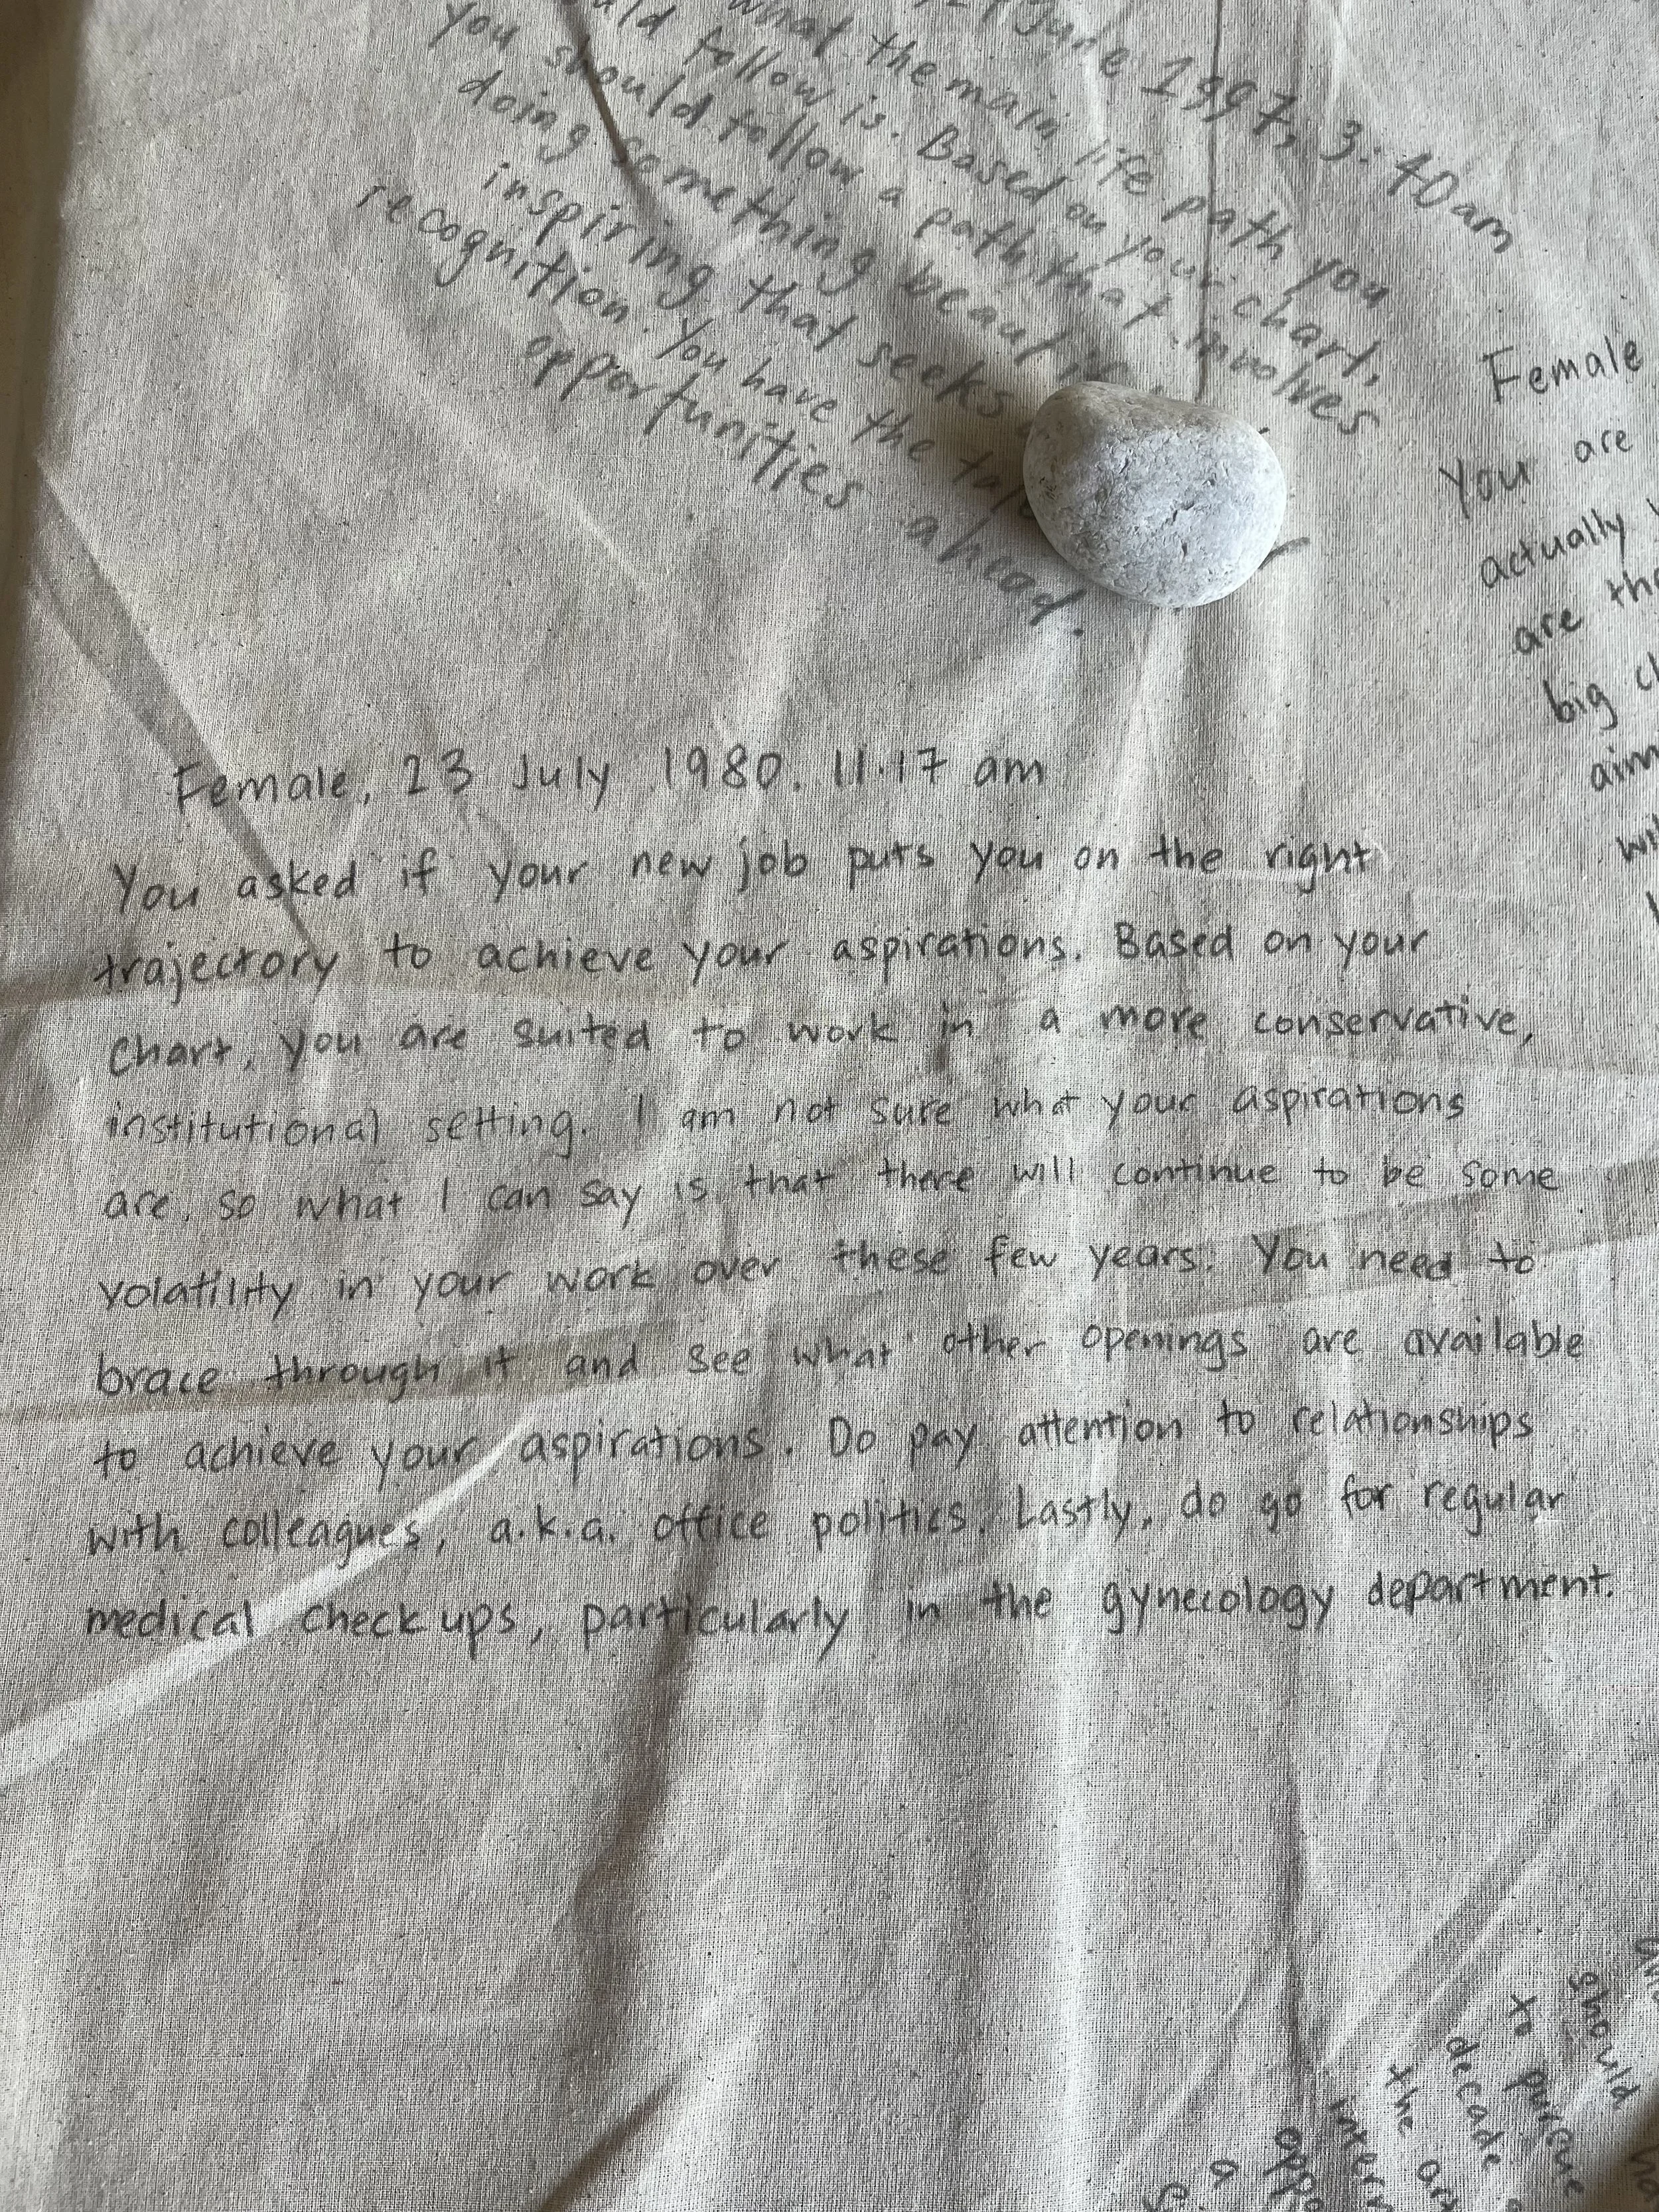 June 1997, 3:40am
what the main life path you
follow is. Based on your chart,
you should follow a path that involves
doing something
inspiring that seeks
recognition. You have the
opportunities ahead.
Female
You are
actually
are
big
Female, 23 July 1980, 11.17 am
You asked if your new job puts you on the right
trajectory to achieve your aspirations. Based on your
chart, you are suited to work in a more conservative,
institutional setting. I am not sure what your aspirations
are, so what I can say is that there will continue to be some
volatility in your work over these few years. You need to
brace through it and see what other openings are available
to achieve your aspirations. Do pay attention to relationships
with colleagues, a.k.a. office politics. Lastly, do go for regular
medical check ups, particularly in the gynecology department.
should
to pursue
decade
the
a